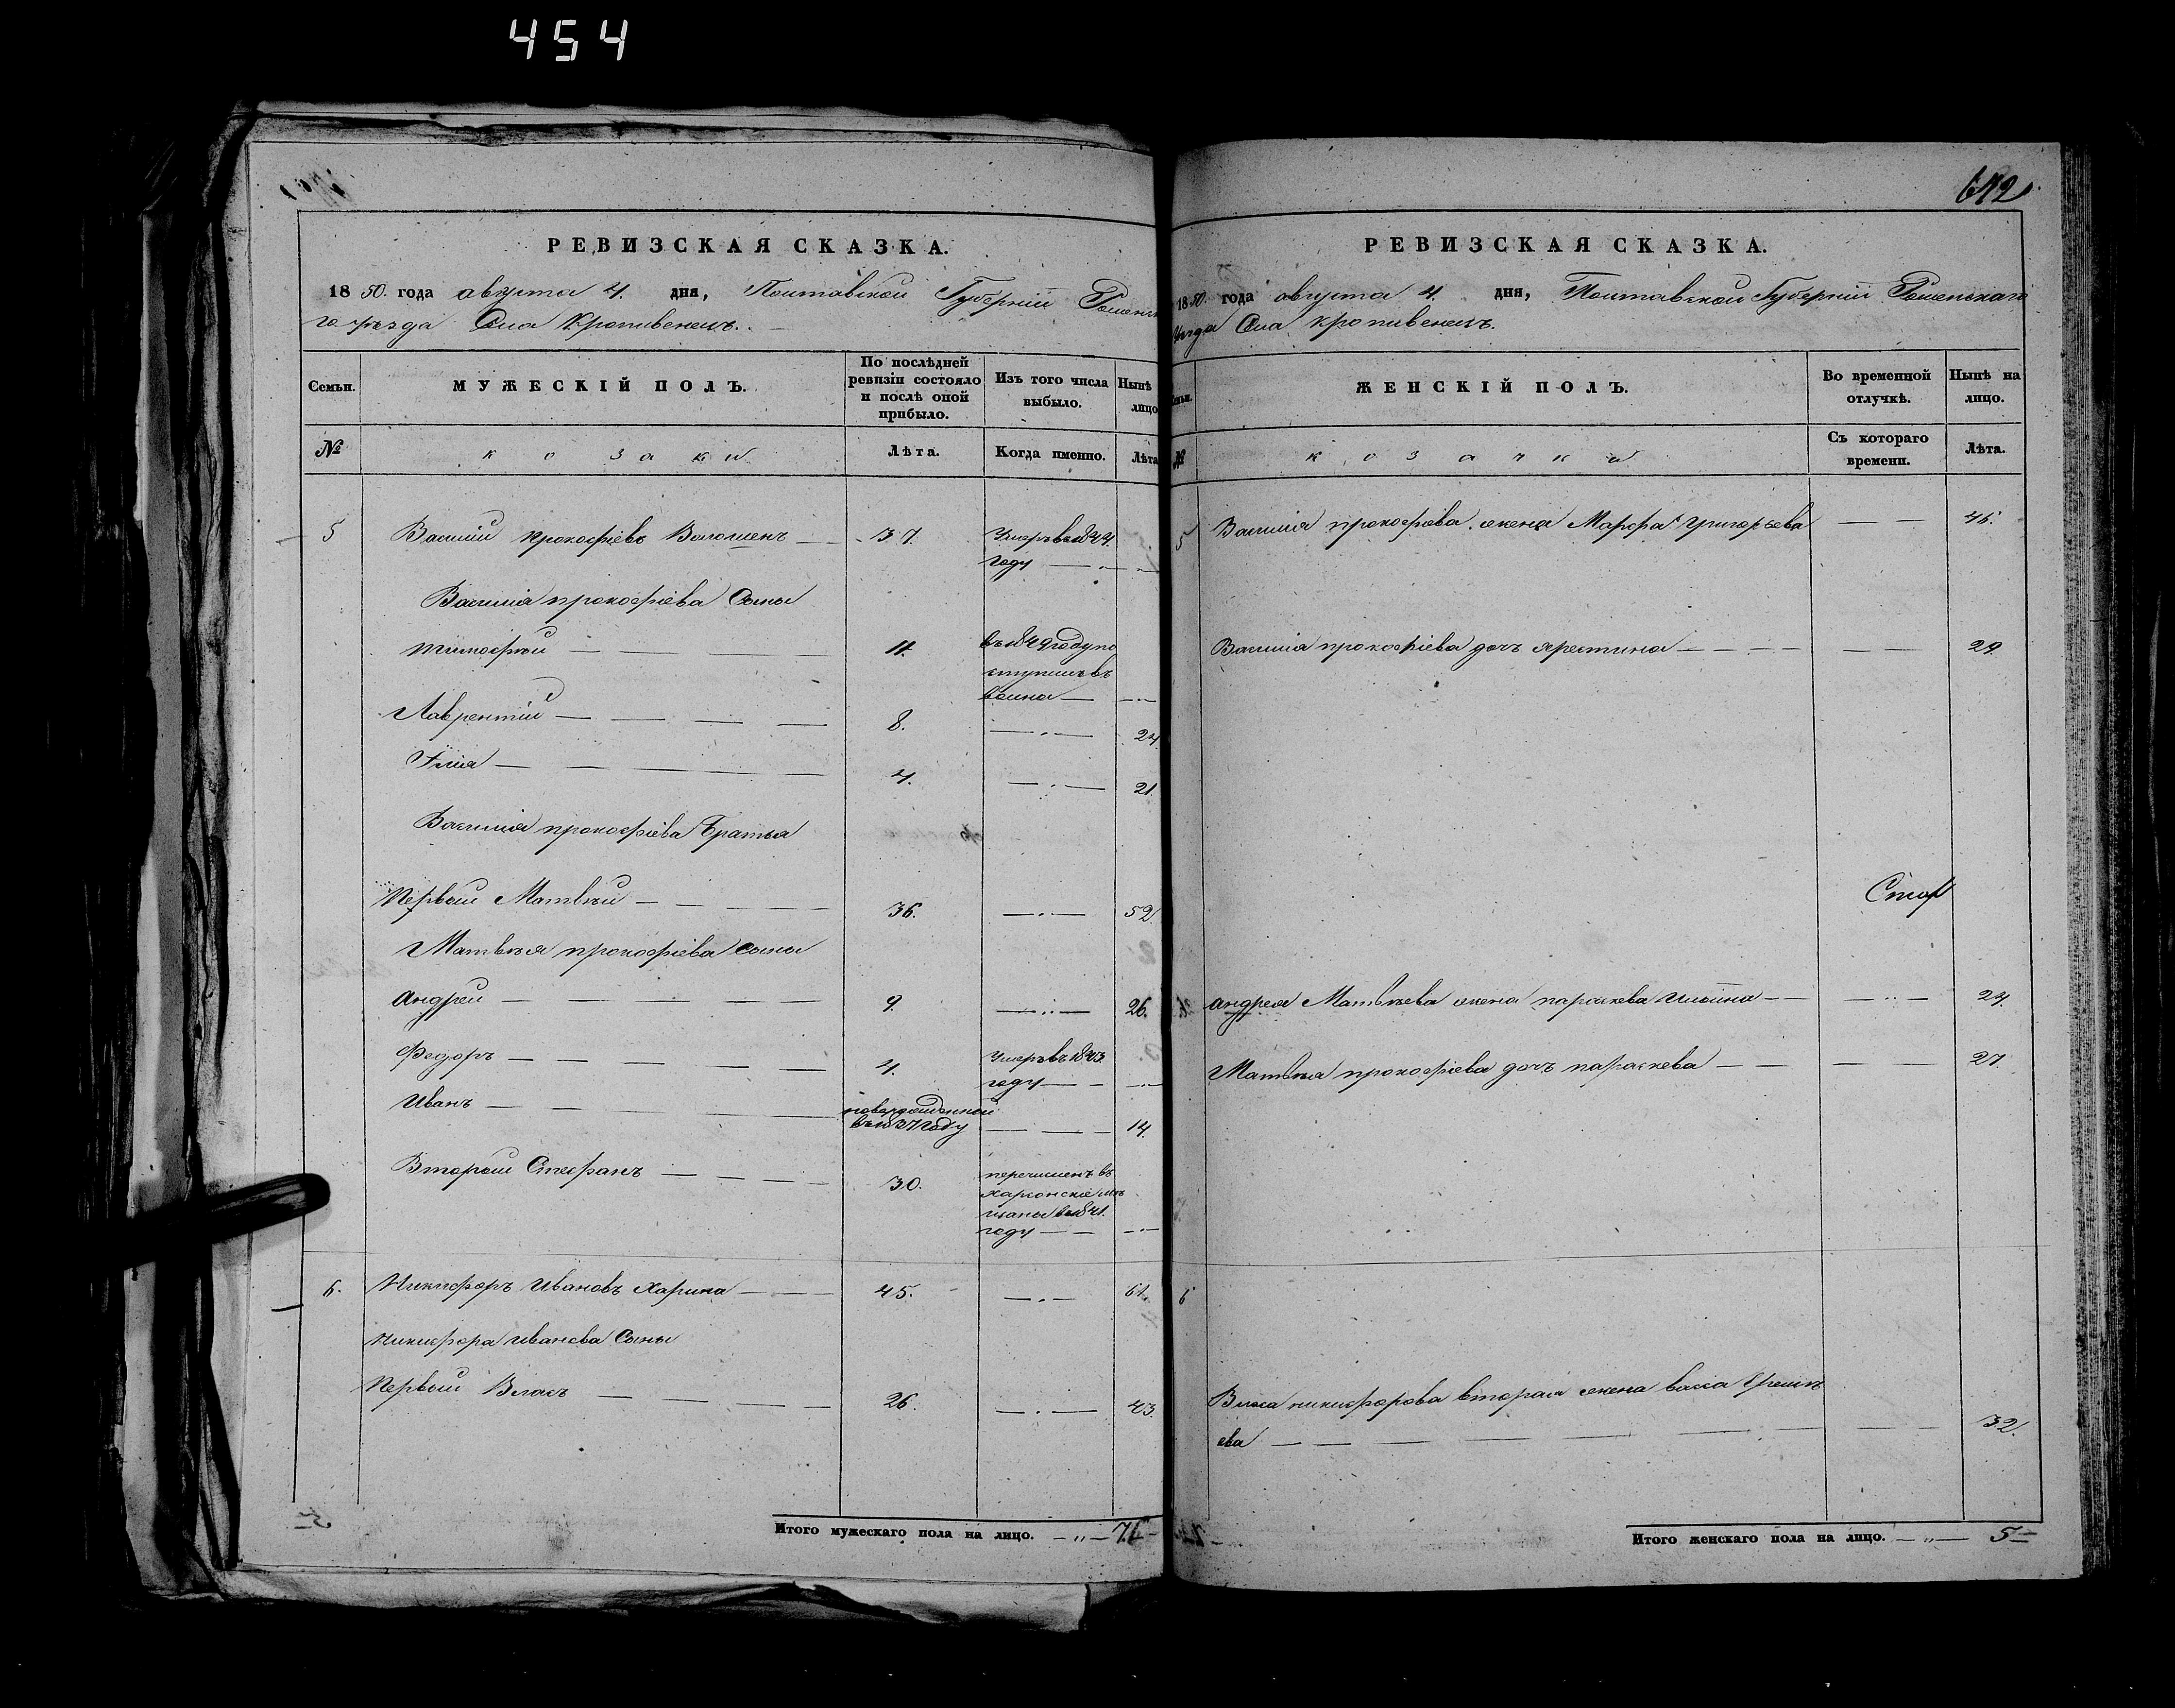 454
РЕВИЗСКАЯ СКАЗКА.
1850. года августа 4. дня, Полтавской Губерніи Роменска
го уѣзда Села Кропивенецъ.
Семьи. МУЖЕСКІЙ ПОЛЪ. По послѣдней ревизіи состояло и послѣ оной прибыло. Изъ того числа выбыло. Нынѣ лицо
№ козаки Лѣта. Когда именно. Лѣта
5 Василій прокофіевъ Волошенъ 37. Умеръ въ 1844
году
Василія прокофіева Сыны
тимофѣй 11. въ 1849 году по
ступилъ въ
воина
Лаврентій 8. 24.
Iлия 4. 21.
Василія прокофіева Братья
Первый Матвѣй 36. 52.
Матвѣя прокофіева сыны
Андрей 9. 26.
Федоръ 4. Умеръ въ 1843
году
Иванъ новорожденный
въ 1837 году 14.
Второй Стефанъ 30. перечисленъ въ
херсонскіе мѣ
щаны въ 1841.
году
6. Никифоръ Ивановъ Харина 45. 61.
Никифора иванова Сыны
Первый Власъ 26. 43.
Итого мужескаго пола на лицо. 7.
642
РЕВИЗСКАЯ СКАЗКА.
1850. года августа 4. дня, Полтавской Губерніи Роменскаго
Уѣзда Села кропивенецъ.
Семьи. ЖЕНСКІЙ ПОЛЪ. Во временной отлучкѣ. Нынѣ на лицо.
№ козачки Съ котораго времени. Лѣта.
5 Василія прокофіева жена Марфа Григорьева 46.
Василія прокофіева дочъ хрестина 29.
андрея Матвѣева жена параскева ильина 24.
Матвѣя прокофіева дочъ параскева 27.
6 Власа никифорова вторая жена васса Еремѣ
ева 32.
Итого женскаго пола на лицо. 5